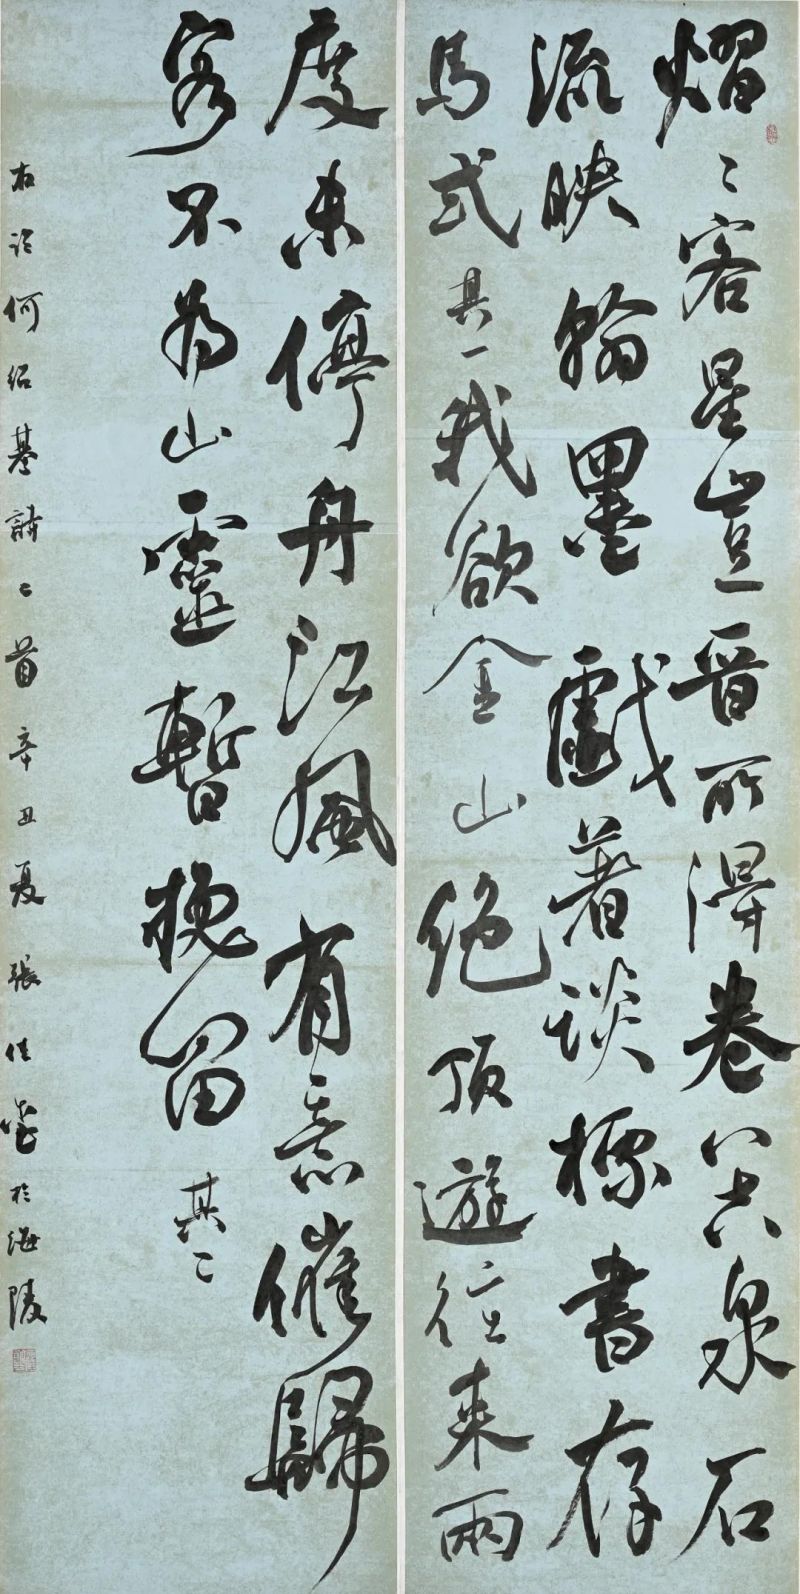 熠〻客星豈晋所得卷阿共泉石
流映翰墨戲著談標書存
馬式其一我欲金山絶頂遊往来兩
度未停舟江風有意催歸
客不為山靈暫挽留其二
右詩何紹基詩二首辛丑夏張佳於海陵